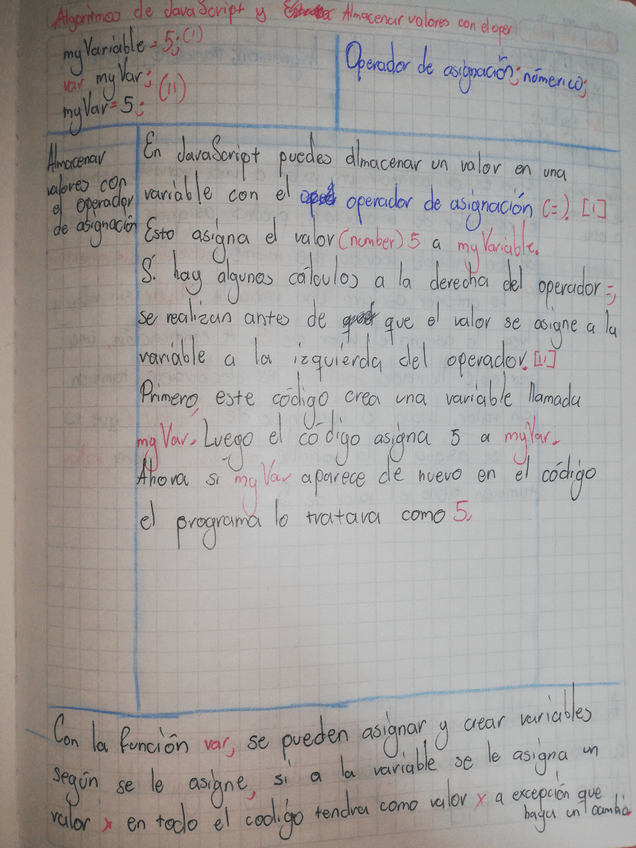 Algoritmos de JavaScript y Almacenar valores con el oper
myVariable = 5; (I)
var myVar;
myVar = 5; (II)
Operador de asignación; númerico;
Almacenar
valores con
el operador
de asignación
En JavaScript puedes almacenar un valor en una
variable con el operador de asignación (=). [I]
Esto asigna el valor (number) 5 a myVariable.
Si hay algunos cálculos a la derecha del operador =,
se realizan antes de que el valor se asigne a la
variable a la izquierda del operador. [II]
Primero, este código crea una variable llamada
myVar. Luego el código asigna 5 a myVar.
Ahora si myVar aparece de nuevo en el código
el programa lo tratara como 5.
Con la función var, se pueden asignar y crear variables
según se le asigne, si a la variable se le asigna un
valor x en todo el codigo tendra como valor x a excepción que
haya un cambio